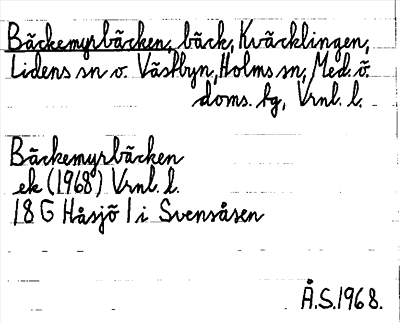 Bäckemyrbäcken, bäck, Kväcklingen,
Lidens sn o. Västbyn, Holms sn, Med. ö.
doms. hg, Vrnl. l.
Bäckemyrbäcken
ek (1968) Vrnl. l.
18 G Håsjö 1 i Svensåsen
Å.S.1968.